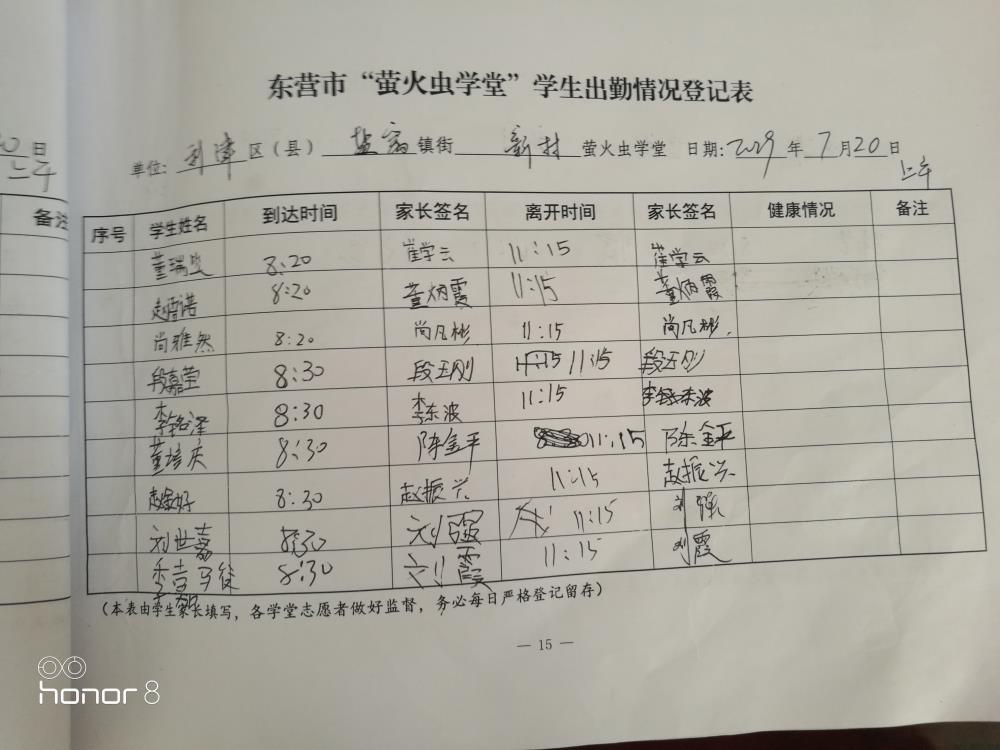 东营市“萤火虫学堂”学生出勤情况登记表
日
上午
单位: 利津 区(县) 盐窝 镇街 新村 萤火虫学堂 日期: 年 7 月 20 日
上午
备注
序号 学生姓名 到达时间 家长签名 离开时间 家长签名 健康情况 备注
董瑞 8:20 崔学云 11:15 崔学云
赵雪诺 8:20 董炳霞 11:15 董炳霞
尚雅然 8:20 尚凡彬 11:15 尚凡彬
段嘉莹 8:30 段玉刚 11:15 11:15 段玉刚
李铭泽 8:30 李东波 11:15 李东波
董培庆 8:30 陈金平 11:15 陈金平
赵 好 8:30 赵振兴 11:15 赵振兴
刘世嘉 8:30 刘强 11:15 刘强
8:30 刘霞 11:15 刘霞
(本表由学生家长填写，各学堂志愿者做好监督，务必每日严格登记留存)
— 15 —
honor 8